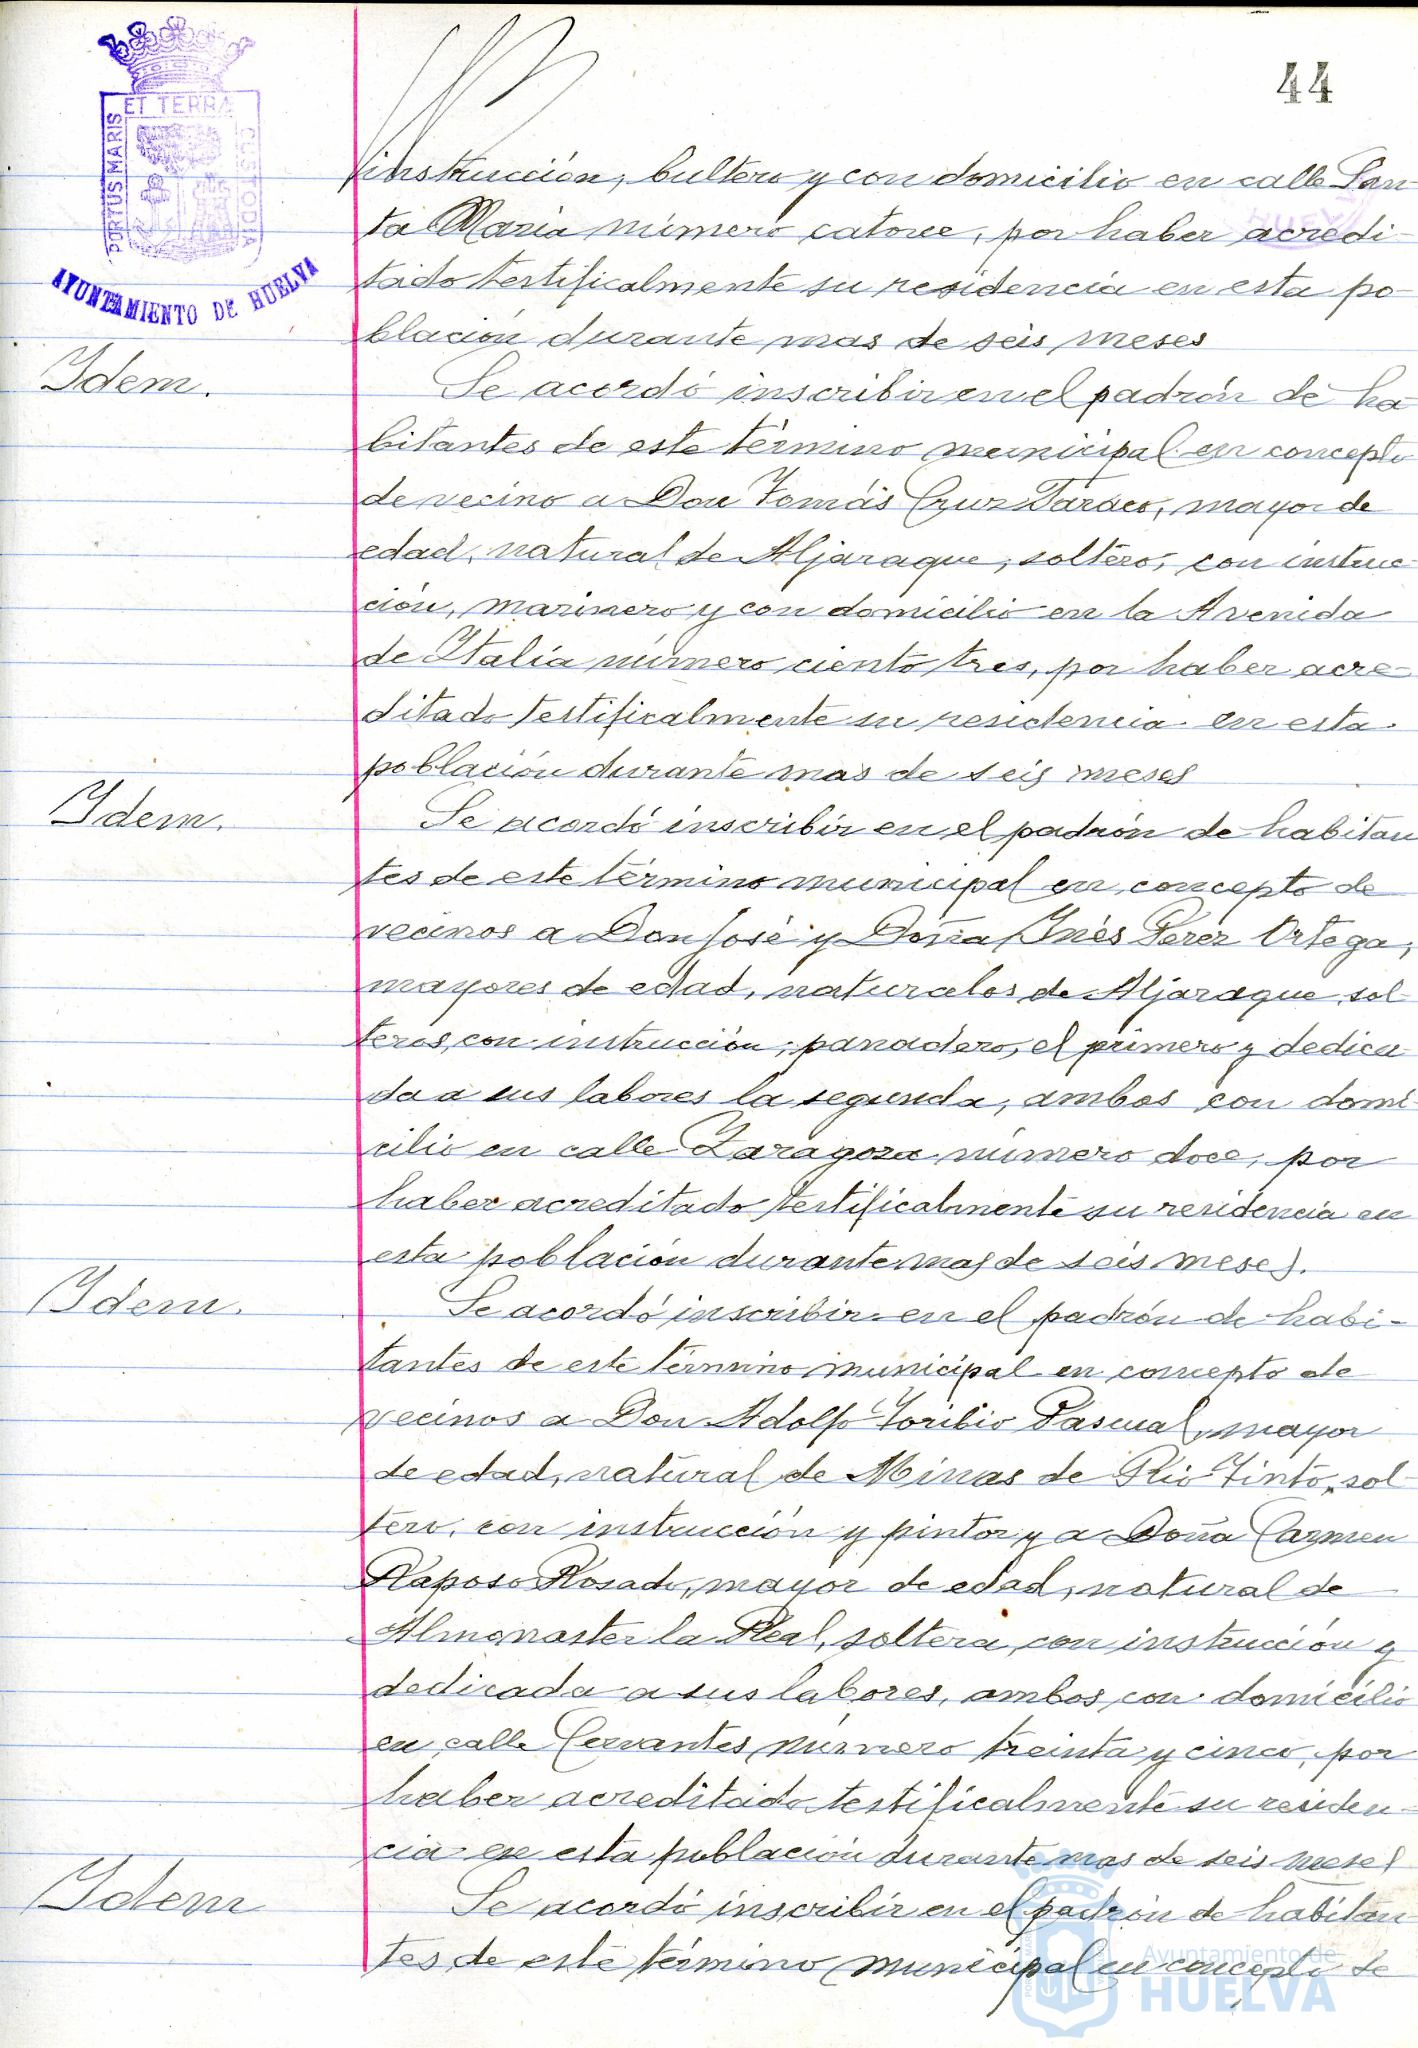 44
PORTUS MARIS ET TERRÆ CUSTODIA
AYUNTAMIENTO DE HUELVA
instrucción, bultero y con domicilio en calle San-
ta Maria número catorce, por haber acredi-
tado testificalmente su residencia en esta po-
blación durante mas de seis meses
Idem.
Se acordó inscribir en el padrón de ha-
bitantes de este término municipal en concepto
de vecino a Don Tomás Cruz, mayor de
edad, natural de Aljaraque, soltero, con instruc-
ción, marinero y con domicilio en la Avenida
de Italia número ciento tres, por haber acre-
ditado testificalmente su residencia en esta
población durante mas de seis meses
Idem.
Se acordó inscribir en el padrón de habitan
tes de este término municipal en concepto de
vecinos a Don José y Doña Inés Pérez Ortega,
mayores de edad, naturales de Aljaraque, sol-
teros, con instrucción, panadero, el primero y dedica
da a sus labores la segunda, ambos con domi-
cilio en calle Zaragoza número doce, por
haber acreditado testificalmente su residencia en
esta población durante mas de seis meses.
Idem.
Se acordó inscribir en el padrón de habi-
tantes de este término municipal en concepto de
vecinos a Don Adolfo Toribio Pascual, mayor
de edad, natural de Minas de Rio Tinto, sol-
tero, con instrucción y pintor y a Doña Carmen
Raposo Rosado, mayor de edad, natural de
Almonaster la Real, soltera, con instrucción y
dedicada a sus labores, ambos con domicilio
en calle Cervantes número treinta y cinco, por
haber acreditado testificalmente su residen-
cia en esta población durante mas de seis meses
Idem
Se acordó inscribir en el padrón de habitan-
tes de este término municipal en concepto de
Ayuntamiento de
HUELVA